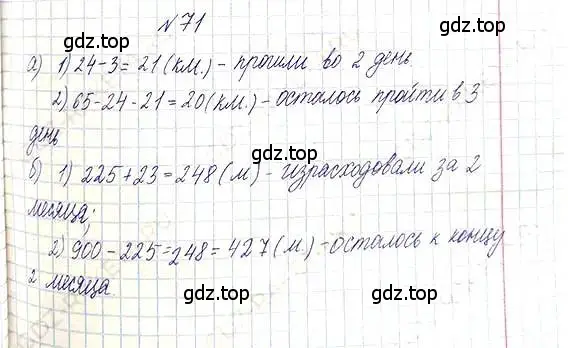 №71
gdz.top
а) 1) 24-3=21(км.) - прошли во 2 день
2) 65-24-21=20(км.) - осталось пройти в 3
день
gdz.top
gdz.top
б) 1) 225+23=248(м) - израсходовали за 2
месяца;
gdz.top
2) 900-225=248=427(м.) - осталось к концу
2 месяца.
gdz.top
gdz.top